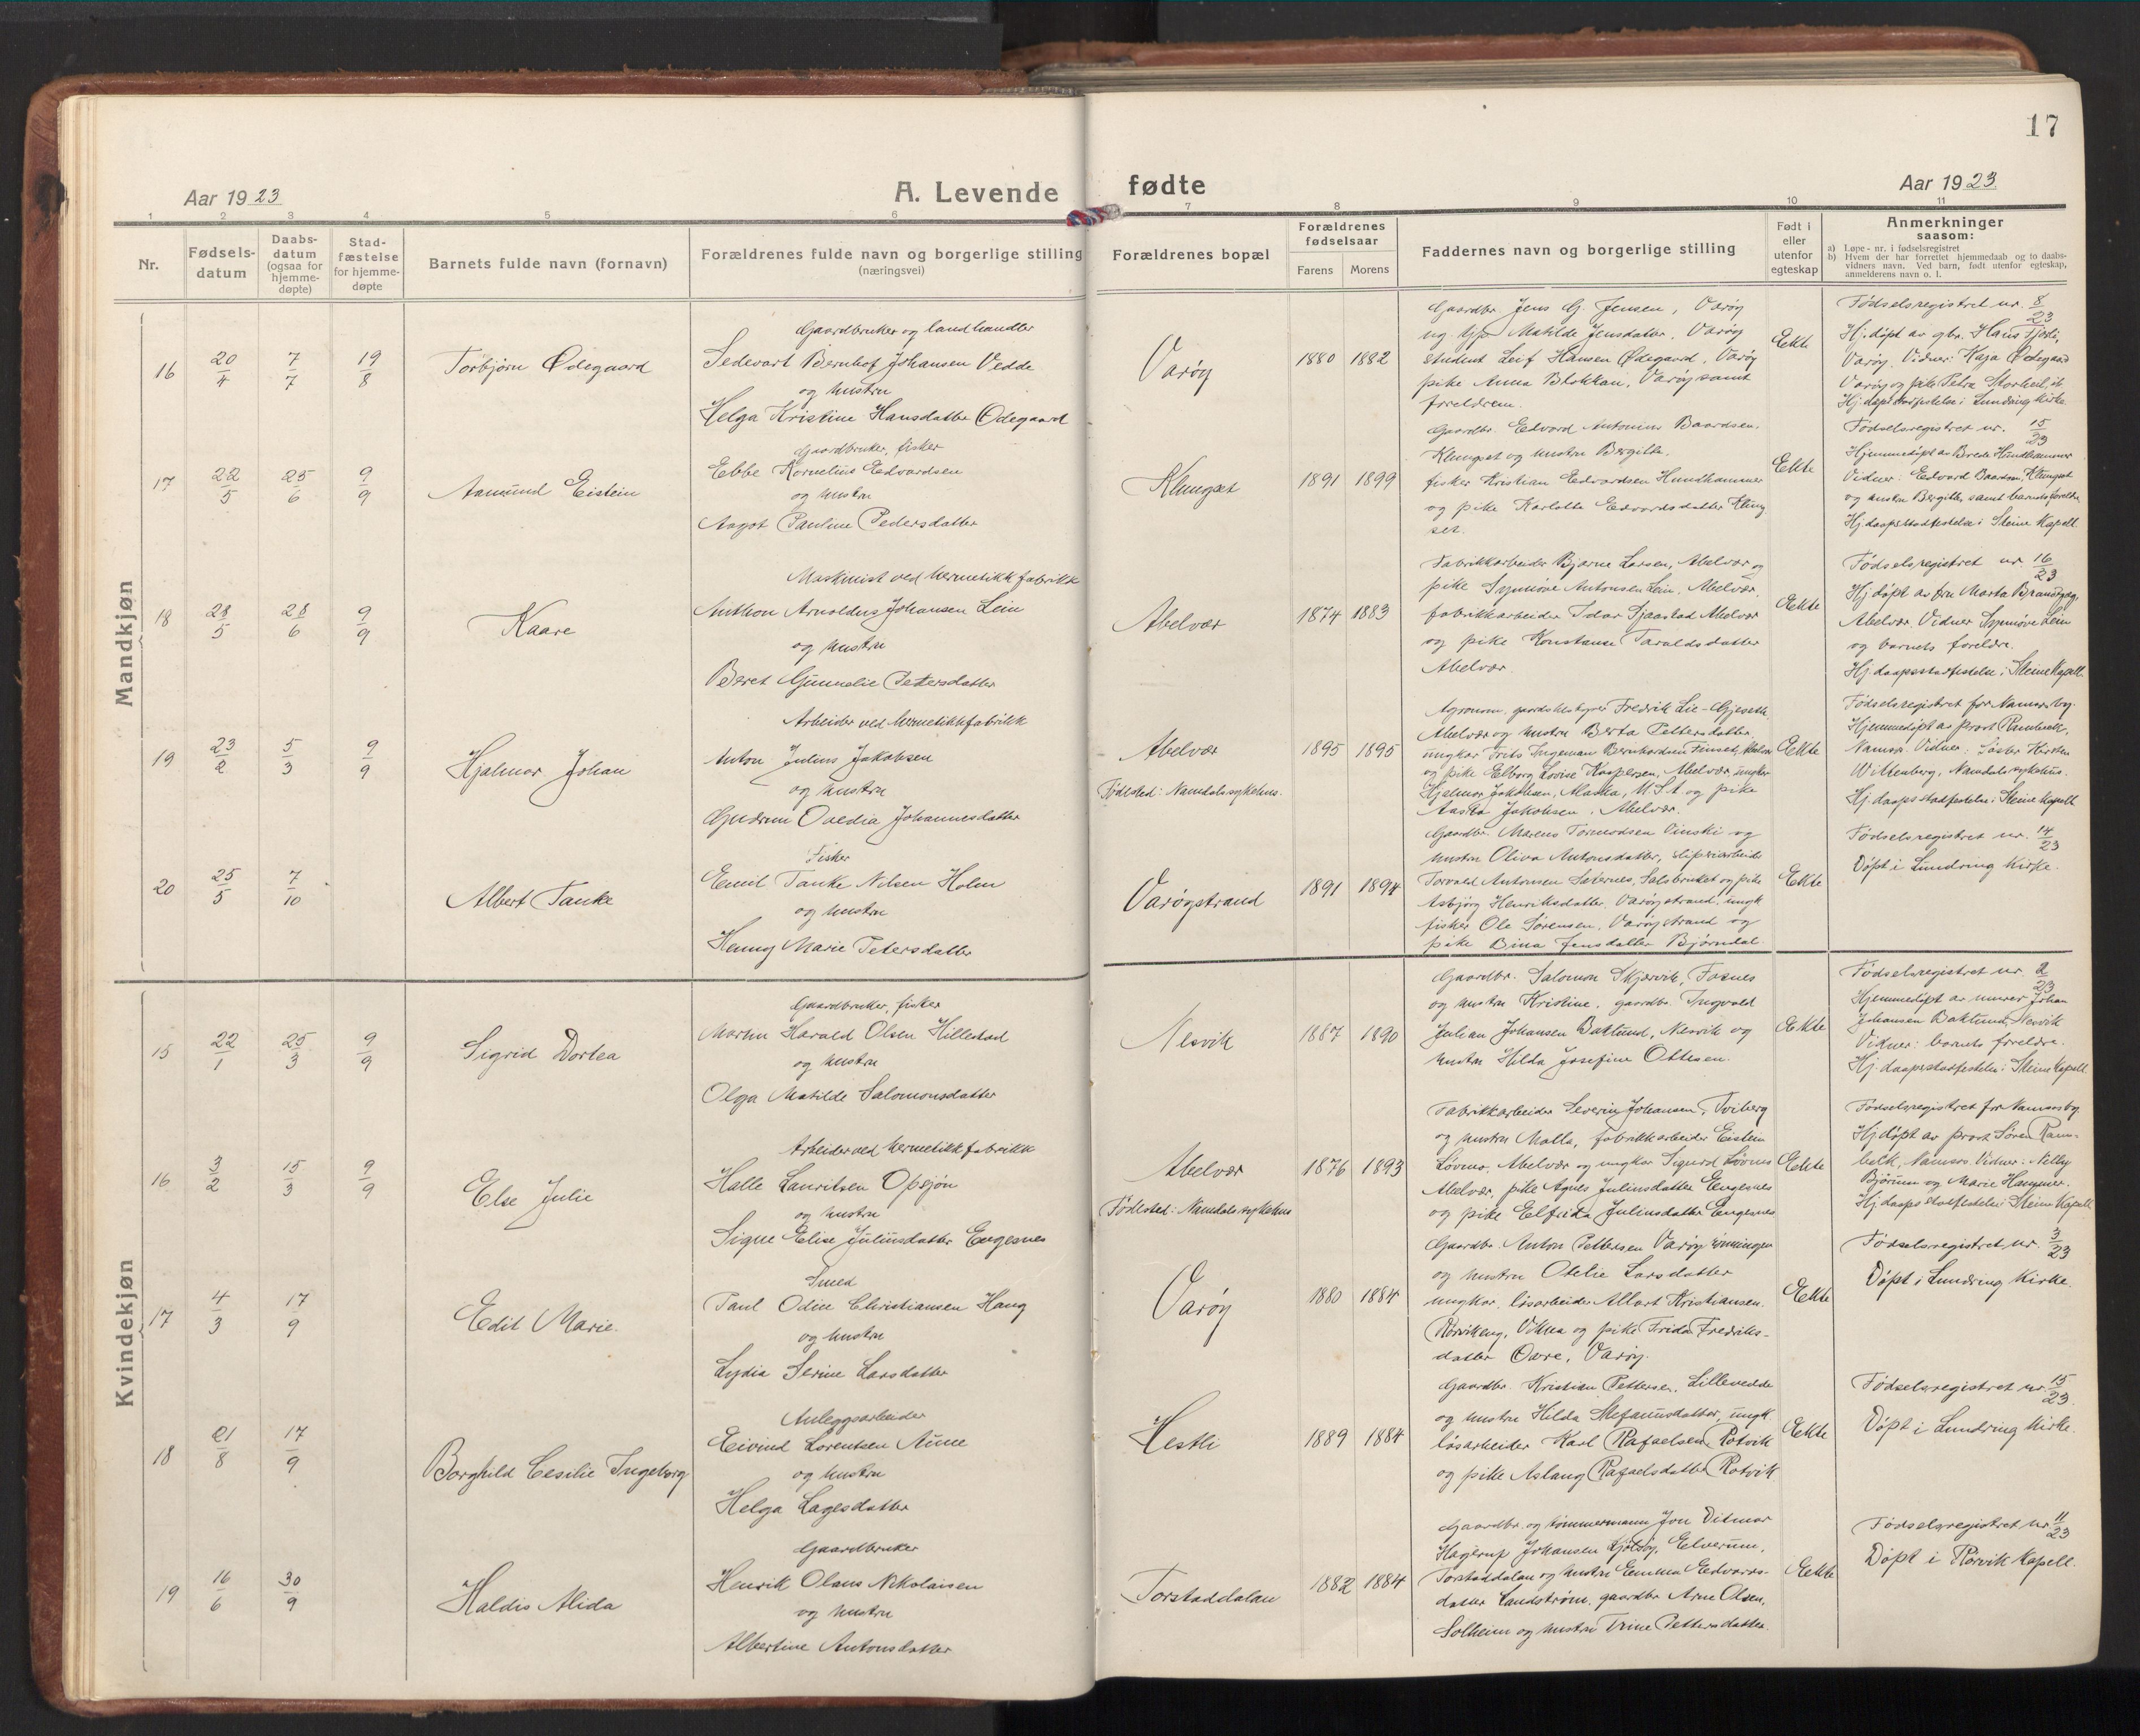 17
Aar 1923
A. Levende
fødte
Aar 1923
1 2 3 4 5 6 7 8 9 10 11
Nr.
Fødsels-
datum
Daabs-
datum
(ogsaa for
hjemme-
døpte)
Stad-
fæstelse
for hjemme-
døpte
Barnets fulde navn (fornavn)
Forældrenes fulde navn og borgerlige stilling
(næringsvei)
Forældrenes bopæl
Forældrenes
fødselsaar
Farens Morens
Faddernes navn og borgerlige stilling
Født i
eller
utenfor
egteskap
Anmerkninger
saasom:
a) Løpe-nr. i fødselsregistret
b) Hvem der har forrettet hjemmedaab og to daabs-
vidners navn. Ved barn, født utenfor egteskap,
anmelderens navn o. l.
Mandkjøn
16 20/4 7/7 19/8 Torbjørn Ødegaard
Gaardbruker og landhandler
Sedevart Bernhof Johansen Vedde
og hustru
Helga Kristine Hansdatter Ødegaard
Varøy 1880 1882
Gaardbr. Jens G. Jensen, Varøy
og Matilde Jensdatter, Varøy
student Leif Hansen Ødegaard, Varøy
pike Anna Blokkan, Varøy samt
foreldrene.
Ekte
Fødselsregistret nr. 8/23
Hj.døpt av gbr. Hans Fjorli,
Varøy. Vidner: Kaja Ødegaard
Varøy og pike Petra Storheil,
Hj.døpt stadfestelse i Lundring kirke.
17 22/5 25/6 9/9 Aamund Eistein
Gaardbruker, fisker
Ebbe Kornelius Edvardsen
og hustru
Aagot Pauline Pedersdatter
Klungset 1891 1899
Gaardbr. Edvard Antonius Baardsen,
Klungset og hustru Bergitte.
fisker Kristian Edvardsen Hundhammer
og pike Karlotte Edvardsdatter Klung-
set.
Ekte
Fødselsregistret nr. 15/23
Hjemmedøpt av Berede Hundhammer
Vidner: Edvard Baardsen, Klungset
og hustru Bergitte, samt barnets foreldre
Hj.daapsstadfestelse i Steine Kapell.
18 28/5 28/6 9/9 Kaare
Maskinist ved hermetikkfabrikk
Anthon Arnoldus Johansen Lein
og hustru
Beret Gunnelie Petersdatter
Abelvær 1874 1883
Fabrikkarbeider Bjarne Larsen, Abelvær og
pike Synnøve Antonsen Lein, Abelvær,
fabrikkarbeider Idar Sjaastad Abelvær
og pike Konstanse Taraldsdatter
Abelvær
Ekte
Fødselsregistret nr 16/23
Hj.døpt av fru Marta
Abelvær. Vidner Synnøve Lein
og barnets foreldre.
Hj.daapsstadfestelse i Steine Kapell.
19 23/2 5/3 9/9 Hjalmar Johan
Arbeider ved hermetikkfabrikk
Anton Julius Jakobsen
og hustru
Gudrun Ovedia Johannesdatter
Abelvær 1895 1895
Fødested: Namdals sykehus.
Agronom, gaardsbestyrer Fredrik Lie-Gjeseth
Abelvær og hustru Berta Pettersdatter,
ungkar Frits Ingeman Bernhardsen Finset, Abelvær
og pike Elborg Lovise Kaspersen, Abelvær, ungkar
Hjalmar Jakobsen, Alaska, U.S.A. og pike
Aasta Jakobsen, Abelvær.
Ekte
Fødselsregistret for Namsos by.
Hjemmedøpt av prost Rambech,
Namsos. Vidner: Søster Kirsten
Wittenberg, Namdals sykehus.
Hj.daapsstadfestelse i Steine Kapell
20 25/5 7/10 Albert Tanke
Fisker
Emil Tanke Nilsen Holm
og hustru
Henny Marie Petersdatter
Varøystrand 1891 1894
Gaardbr. Marens Tormodsen Vinski og
hustru Oliva Antonsdatter, sliperiarbeider
Torvald Antonsen Saternes, Salsbruket og pike
Asbjørg Henriksdatter, Varøystrand, ungk
fisker Ole Sørensen, Varøystrand og
pike Bina Jensdatter Bjørndal
Ekte
Fødselsregistret nr. 14/23
Døpt i Lundring kirke.
Kvindekjøn
15 22/1 25/3 9/9 Sigrid Dortea
Gaardbruker, fisker
Martin Harald Olsen Hillestad
og hustru
Olga Matilde Salomonsdatter
Nesvik 1887 1890
Gaardbr. Salomon Skjærvik, Fosnes
og hustru Kristine, gaardbr. Ingvald
Julian Johansen Baklund, Nesvik og
hustru Hilda Josefine Ottesen.
Ekte
Fødselsregistret nr. 2/23
Hjemmedøpt av murer Johan
Johansen Baklund, Nesvik
Vidner: barnets foreldre.
Hj.daapsstadfestelse i Steine Kapell
16 3/2 15/3 9/9 Else Julie
Arbeider ved hermetikkfabrikk
Halle Lauritsen Opsjøn
og hustru
Signe Elise Juliusdatter Engesnes
Abelvær 1876 1893
Fødested: Namdals sykehus
Fabrikkarbeider Severin Johansen, Tviberg
og hustru Malla, fabrikkarbeider Eistein
Løvmo, Abelvær og ungkar Sigurd Løvmo
Abelvær, pike Agnes Juliusdatter Engesnes
og pike Elfrida Juliusdatter Engesnes
Ekte
Fødselsregistret for Namsos by
Hj.døpt av prost Søren Ram-
bech, Namsos. Vidner: Nelly
Bjørum og Marie Hammer.
Hj.daapsstadfestelse i Steine Kapell
17 4/3 17/9 Edit Marie.
Smed
Paul Odin Christiansen Haug
og hustru
Lydia Serine Larsdatter
Varøy 1880 1884
Gaardbr. Anton Pettersen Varøy rønningen
og hustru Otelie Larsdatter
ungkar, løsarbeider Albart Kristiansen.
Rørvikeng, Vikna og pike Frida Fredriks-
datter Ovre, Varøy.
Ekte
Fødselsregistret nr. 3/23
Døpt i Lundring kirke.
18 21/8 17/9 Borghild Cesilie Ingeborg
Anleggsarbeider
Eivind Lorentsen Aune
og hustru
Helga Lagesdatter
Hestli 1889 1884
Gaardbr. Kristian Pettersen, Lillevedde
og hustru Hilda Stefanusdatter, ungk.
løsarbeider Karl Rafaelsen Rotvik
og pike Aslaug Rafaelsdatter Rotvik
Ekte
Fødselsregistret nr. 15/23.
Døpt i Lundring kirke.
19 16/6 30/9 Haldis Alida
Gaardbruker
Henrik Olaus Nikolaisen
og hustru
Albertine Antonsdatter
Torstaddalan 1882 1884
Gaardbr. og tømmermann Jon Ditmar
Hagerup Johansen Kjølsøy, Elverum,
Torstaddalan og hustru Emma Edvards-
datter Landstrøm, gaardbr Arne Olsen,
Solheim og hustru Trine Pettersdatter.
Ekte
Fødselsregistret nr 11/23
Døpt i Rørvik Kapell.